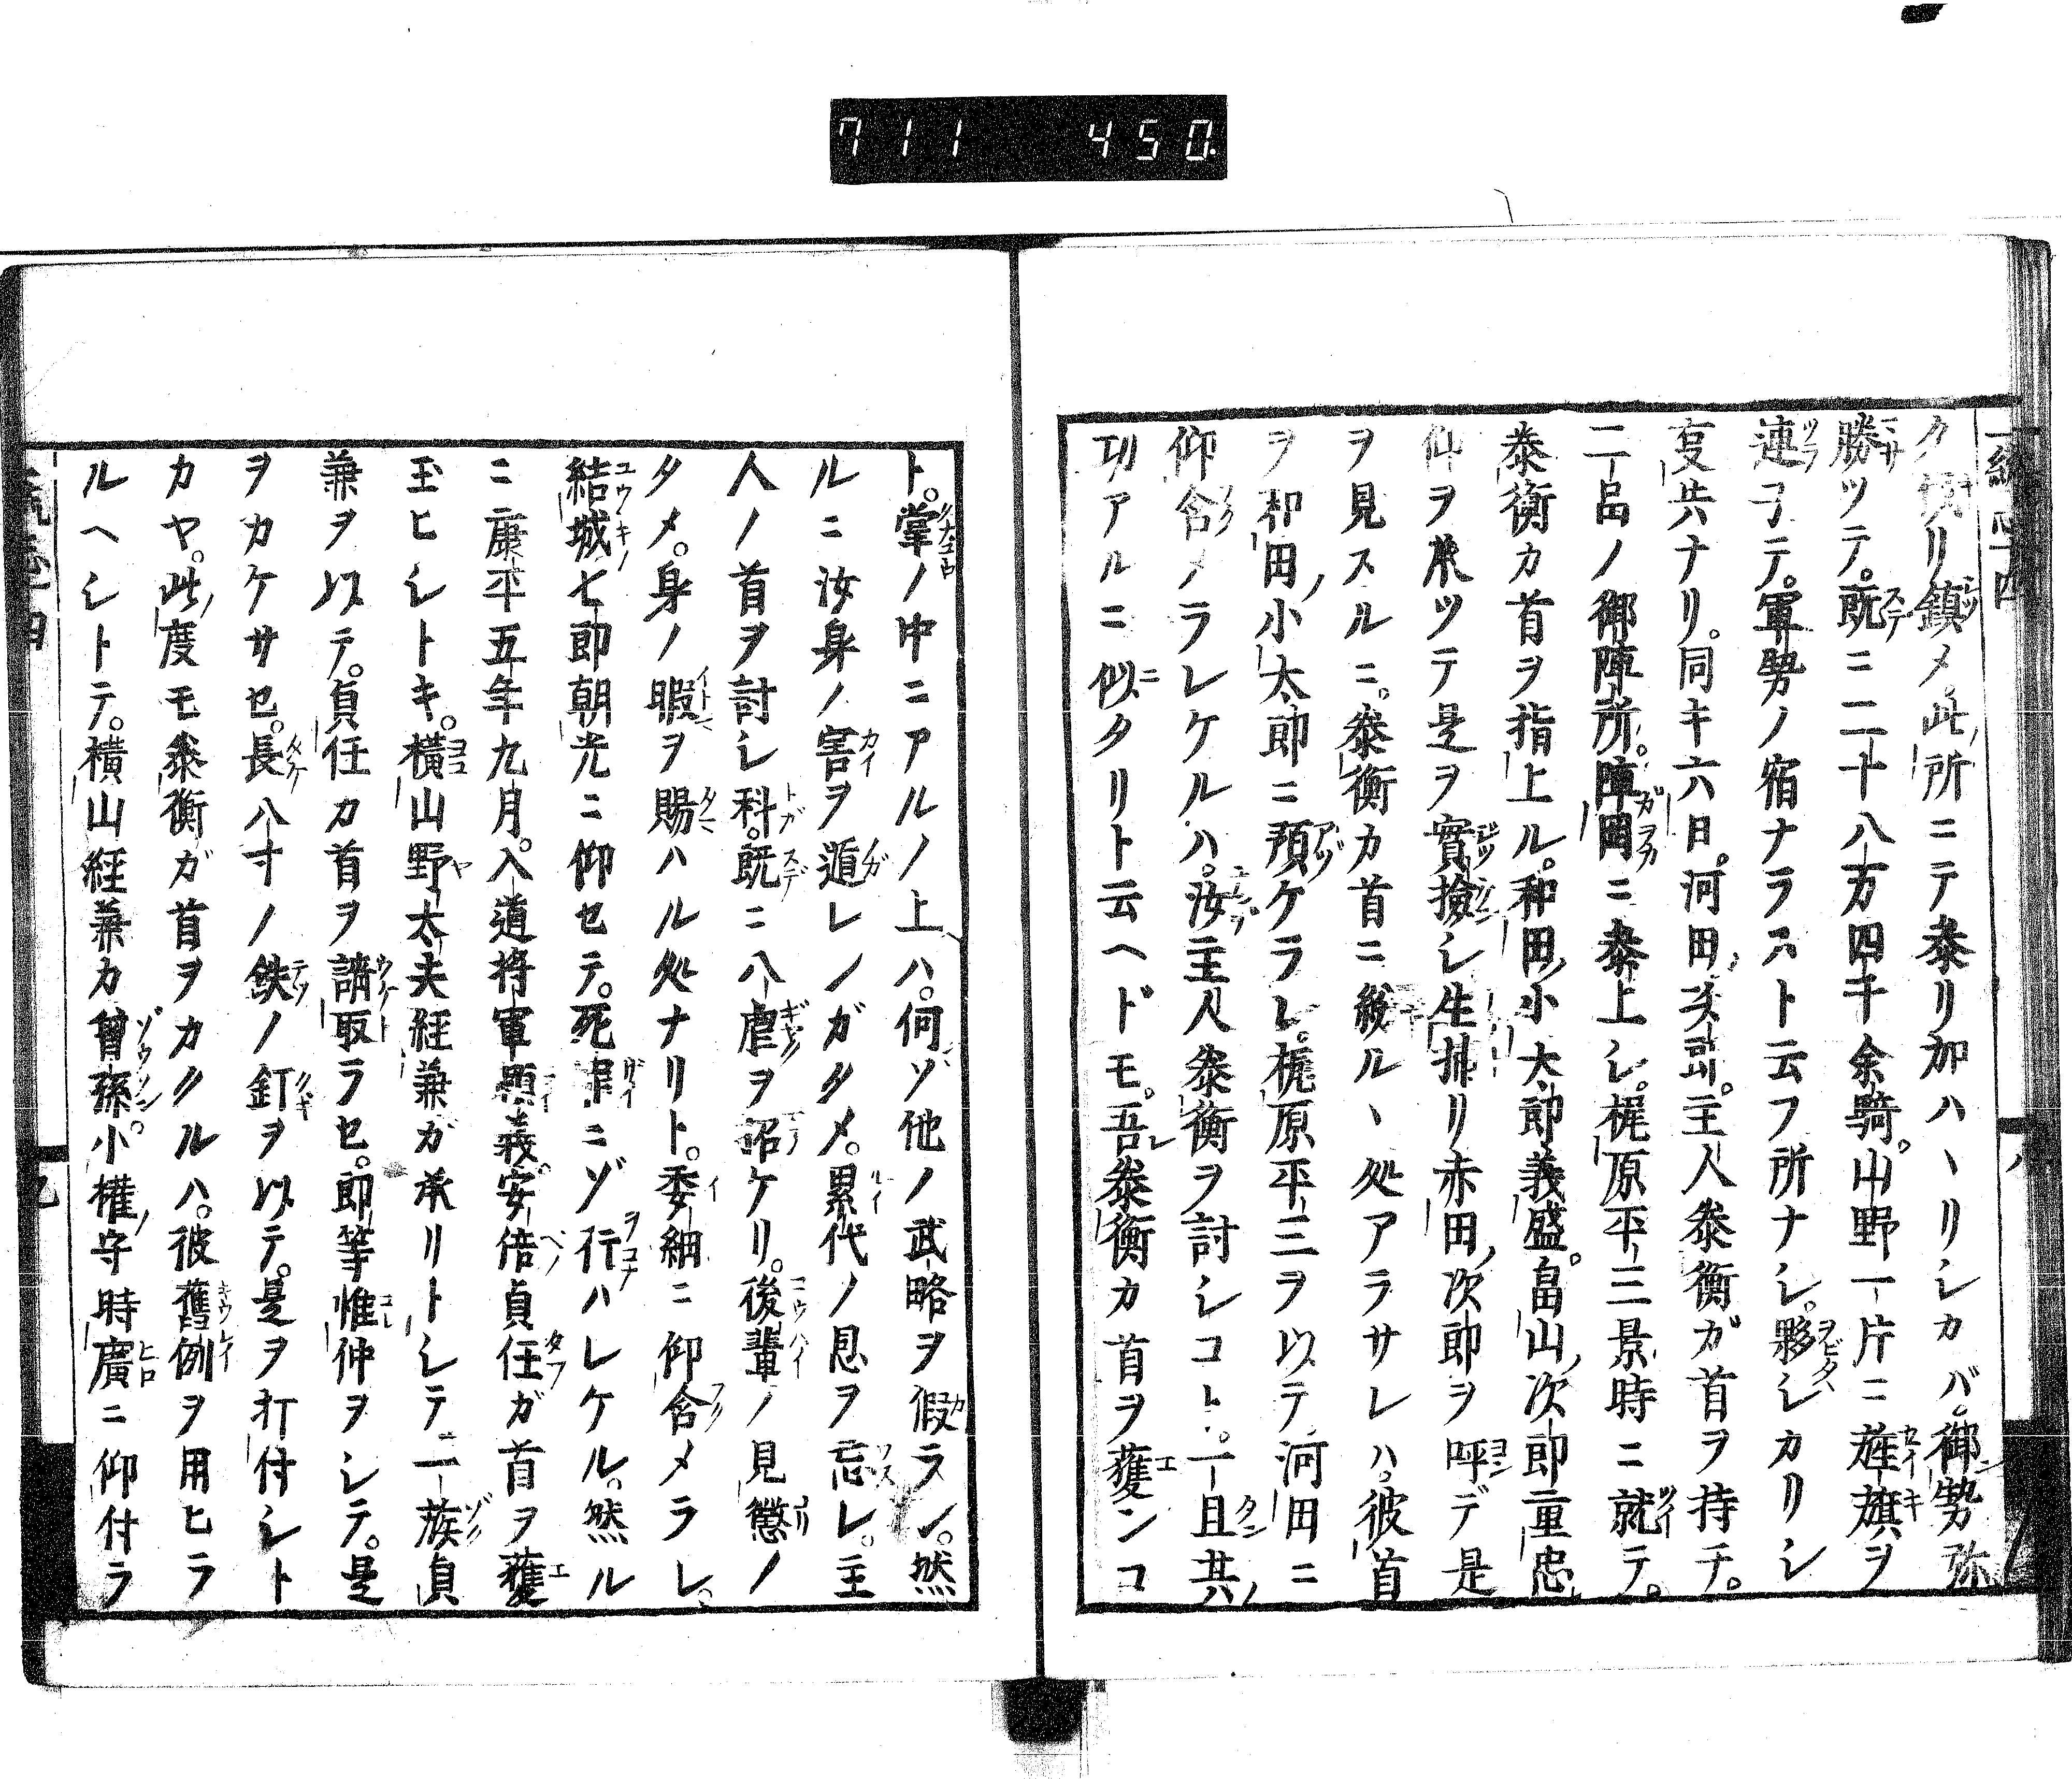 711 450
ク切リ鎮メ。此所ニテ泰リ加ハヽリシカバ。御勢弥
勝ツテ。既ニ二十八万四千余騎。山野一片ニ旌旗ヲ
連ヲテ。軍勢ノ宿ナラスト云フ所ナシ。夥シカリシ
叓共ナリ。同キ六日。河田次郎。主人泰衡ガ首ヲ持チ。
二品ノ御陣所。陣岡ニ泰上シ。梶原平三景時ニ就テ。
泰衡カ首ヲ指上ル。和田小太郎義盛。畠山次郎重忠
仰ヲ承ツテ是ヲ實撿シ生捕リ赤田次郎ヲ呼デ是
ヲ見スルニ。泰衡カ首ニ紛ルヽ処アラサレハ。彼首
ヲ和田小太郎ニ預ケラレ。梶原平三ヲ以テ河田ニ
仰含メラレケルハ。汝主人泰衡ヲ討シコト。一旦其
功アルニ似タリト云ヘドモ。吾泰衡カ首ヲ獲ンコ
ト。掌ノ中ニアルノ上ハ。何ソ他ノ武略ヲ假ラン。然
ルニ汝身ノ害ヲ遁レノガタメ。累代ノ恩ヲ忘レ。主
人ノ首ヲ討シ科。既ニ八虐ヲ招ケリ。後輩ノ見懲ノ
タメ。身ノ暇ヲ賜ハル処ナリト。委細ニ仰含メラレ。
結城七郎朝光ニ仰セテ。死罪ニゾ行ハレケル。然ル
ニ康平五年九月。入道将軍頼義。安倍貞任ガ首ヲ獲
玉ヒシトキ。横山野太夫経兼ガ承リトシテ。一族貞
兼ヲ以テ。貞任カ首ヲ請取ラセ。郎等惟仲ヲシテ。是
ヲカケサセ。長八寸ノ鉄ノ釘ヲ以テ。是ヲ打付シト
カヤ。此度モ泰衡ガ首ヲカクルハ。彼舊例ヲ用ヒラ
ルヘシトテ。横山経兼カ曾孫。小權守時廣ニ仰付ラ